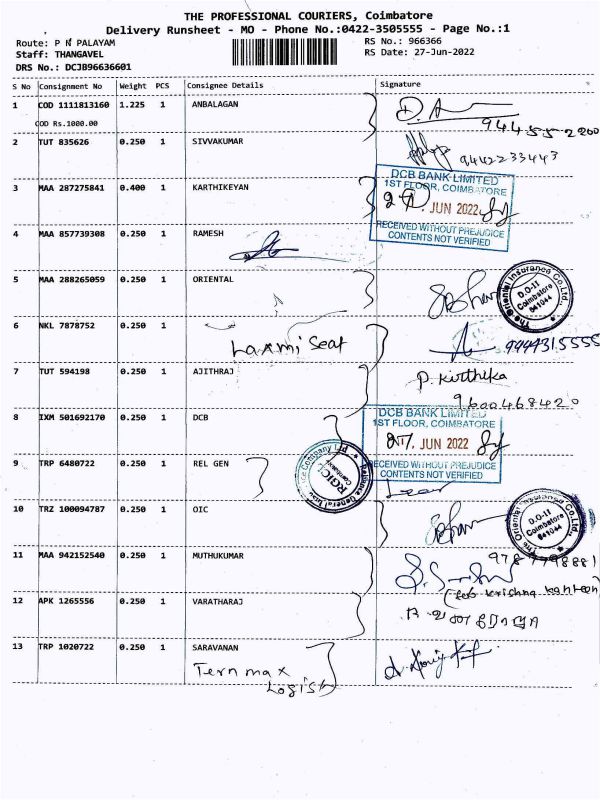 THE PROFESSIONAL COURIERS, Coimbatore
Delivery Runsheet - MO - Phone No.:0422-3505555 - Page No.:1
Route: P N PALAYAM
RS No.: 966366
Staff: THANGAVEL
RS Date: 27-Jun-2022
DRS No.: DCJB96636601
S No Consignment No Weight PCS Consignee Details Signature
1 COD 1111813160 1.225 1 ANBALAGAN
COD Rs.1000.00
2 TUT 835626 0.250 1 SIVVAKUMAR
9442233443
DCB BANK LIMITED
1ST FLOOR, COIMBATORE
3 MAA 287275841 0.400 1 KARTHIKEYAN
JUN 2022
RECEIVED WITHOUT PREJUDICE
CONTENTS NOT VERIFIED
4 MAA 857739308 0.250 1 RAMESH
5 MAA 288265059 0.250 1 ORIENTAL
The Oriental Insurance Co.Ltd.,
D.O-II
Coimbatore
641044
6 NKL 7878752 0.250 1
Laxmi Seat
9994315555
7 TUT 594198 0.250 1 AJITHRAJ
P. Kirthika
9600468420
8 IXM 501692170 0.250 1 DCB
DCB BANK LIMITED
1ST FLOOR, COIMBATORE
27 JUN 2022
RECEIVED WITHOUT PREJUDICE
CONTENTS NOT VERIFIED
9 TRP 6480722 0.250 1 REL GEN
RGICL
10 TRZ 100094787 0.250 1 OIC
The Oriental Insurance Co.Ltd.,
D.O-II
Coimbatore
641044
11 MAA 942152540 0.250 1 MUTHUKUMAR
12 APK 1265556 0.250 1 VARATHARAJ
13 TRP 1020722 0.250 1 SARAVANAN